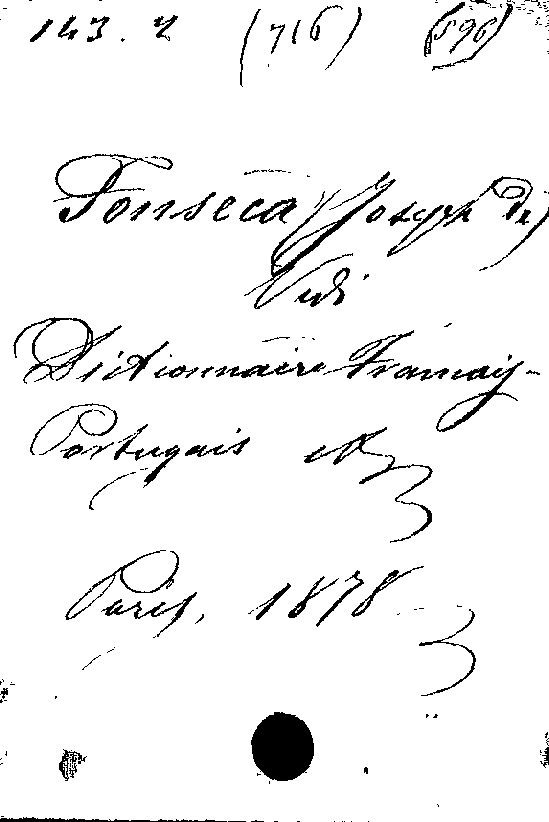 143.2 (716) (596)
Fonseca (Joseph da)
Vidi
Dictionnaire Français-
Portugais etc
Paris, 1878